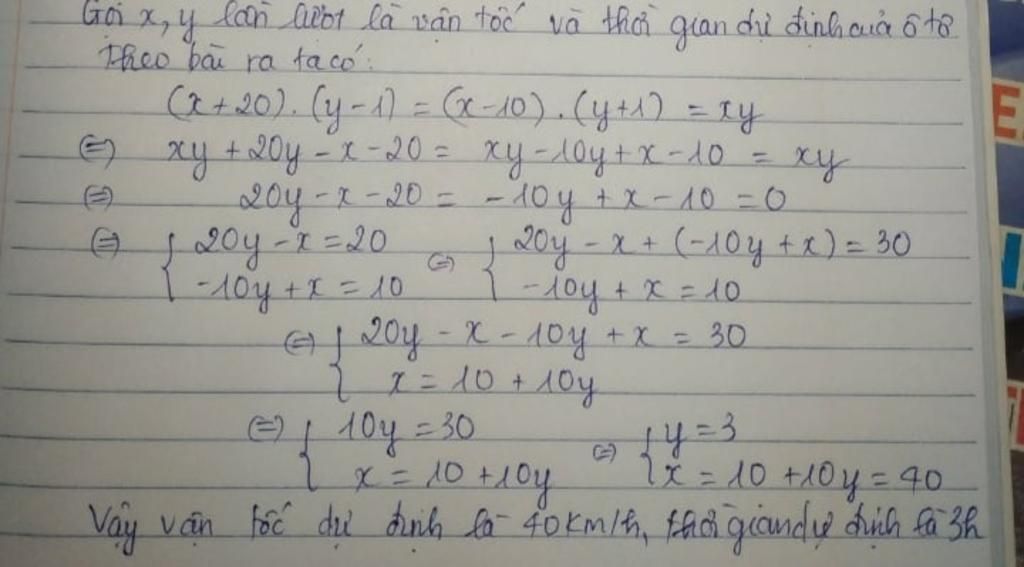 Gọi x, y lần lượt là vận tốc và thời gian dự định của ô tô
Theo bài ra ta có:
(x + 20).(y - 1) = (x - 10).(y + 1) = xy
⇔ xy + 20y - x - 20 = xy - 10y + x - 10 = xy
⇔ 20y - x - 20 = -10y + x - 10 = 0
⇔ { 20y - x = 20 ⇔ { 20y - x + (-10y + x) = 30
-10y + x = 10 -10y + x = 10
⇔ { 20y - x - 10y + x = 30
x = 10 + 10y
⇔ { 10y = 30 ⇔ { y = 3
x = 10 + 10y x = 10 + 10y = 40
Vậy vận tốc dự định là 40km/h, thời gian dự định là 3h
E